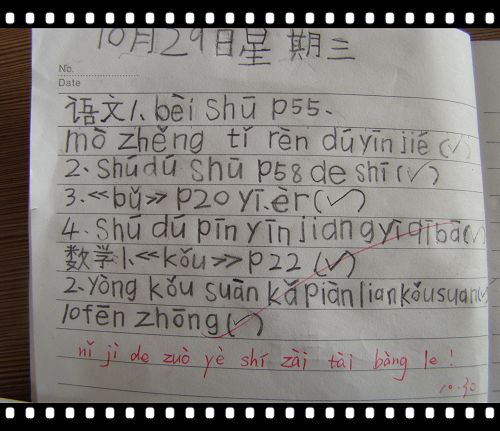 10月29日星期三
No.
Date
语文1、bèi shū p55、
mò zhěng tǐ rèn dú yīn jié (✓)
2、shú dú shū p58 de shī (✓)
3、《bǔ》 p20 yī、èr (✓)
4、shú dú pīn yīn jiang yì qǐ bà (✓)
数学1、《kǒu》 p22 (✓)
2、yòng kǒu suàn kǎ piàn lian kǒu suan
10fēn zhōng (✓)
nǐ jì de zuò yè shí zài tài bàng le!
10.30